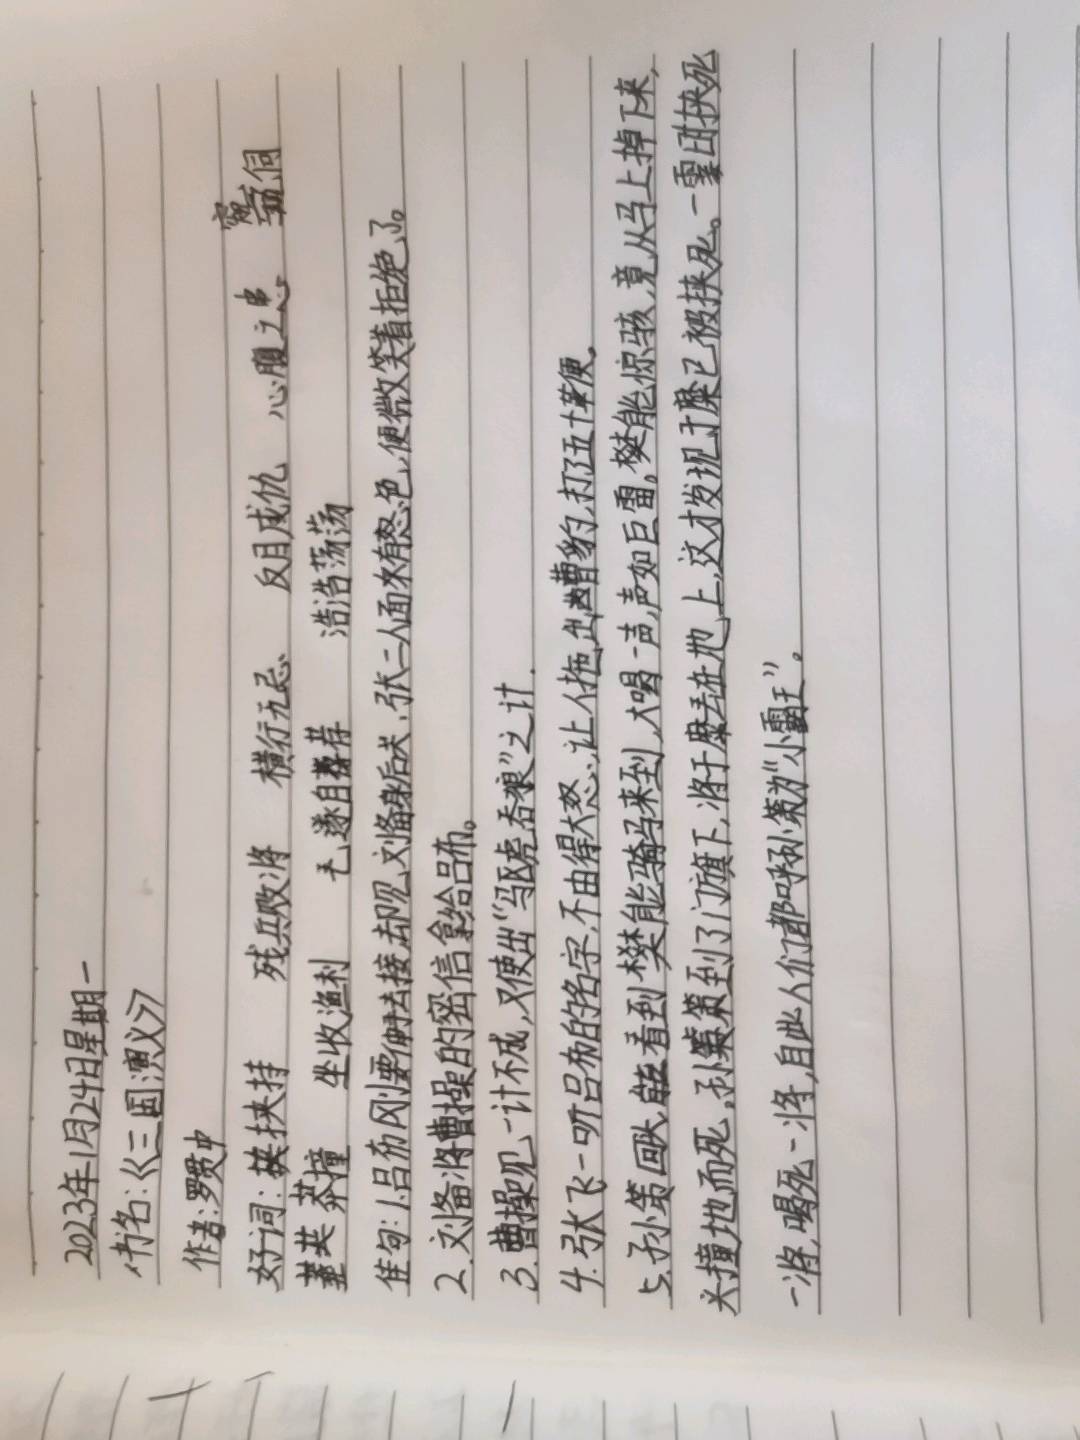 2023年1月24日星期一
书名:《三国演义》
作者:罗贯中
好词: 挟持 残兵败将 横行无忌 反目成仇 心腹之患 窥伺
莽撞 坐收渔利 毛遂自荐 浩浩荡荡
佳句:1.吕布刚要伸手去接,却见刘备身后关、张二人面有怒色,便微笑着拒绝了。
2.刘备将曹操的密信拿给吕布。
3.曹操见一计不成,又使出“驱虎吞狼”之计.
4.张飞一听吕布的名字,不由得大怒,让人拖出曹豹,打了五十鞭。
5.孙策回头看到樊能骑马来到,大喝一声,声如巨雷。樊能惊骇,竟从马上掉下来,
头撞地而死。孙策到了门旗下,将于糜丢在地上,这才发现于糜已被挟死。一霎时挟死
一将,喝死一将,自此人们都呼孙策为“小霸王”。